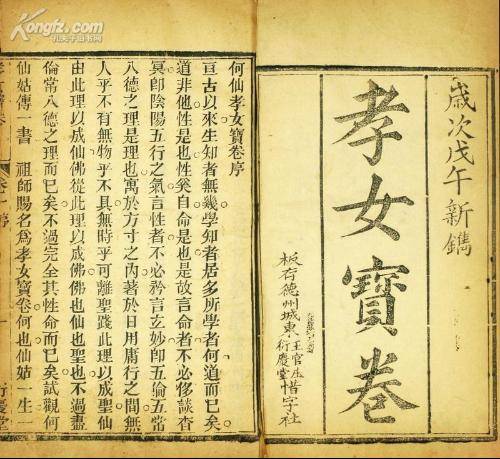 歲次戊午新鐫
孝女寶卷
板存德州城東王官庄衍慶堂惜字社
何仙孝女寶卷序
亘古以來生知者無幾學知者居多所學者何道而已矣
道非他性是也性奚自命是也是故言命者不必侈談杳
冥卽陰陽五行之氣言性者不必矜言玄妙卽五倫五常
八德之理是理也寓於方寸之內著於日用庸行之間無
人乎不有無物乎不具無時乎可離聖踐此理以成聖仙
由此理以成仙佛從此理以成佛佛也仙也聖也不過盡
倫常八德之理而已矣不過完全其性命而已矣試觀何
仙姑傳一書 祖師賜名爲孝女寶卷何也仙姑一生一
孔夫子旧书网